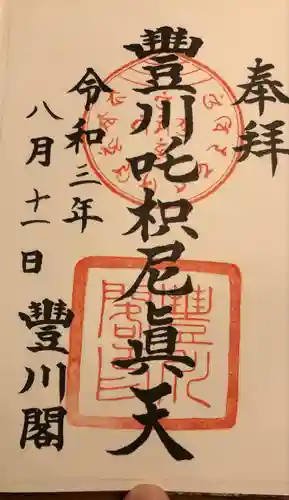 奉拝
豐川吒枳尼眞天
令和三年
八月十一日
豐川閣
豐川閣印